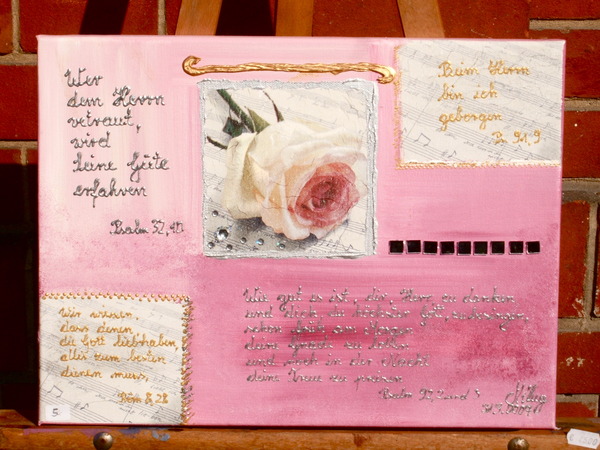 Wer
dem Herrn
vertraut,
wird
seine Güte
erfahren
Psalm 32, 10
Beim Herrn
bin ich
geborgen
Ps. 91, 9
Wir wissen,
dass denen,
die Gott liebhaben,
alles zum besten
dienen muss,
Röm 8, 28
Wie gut es ist, dir, Herr, zu danken
und dich, du höchster Gott, zu besingen,
schon früh am Morgen
deine Gnade zu loben
und noch in der Nacht
deine Treue zu preisen
Psalm 92, 2 und 3
5